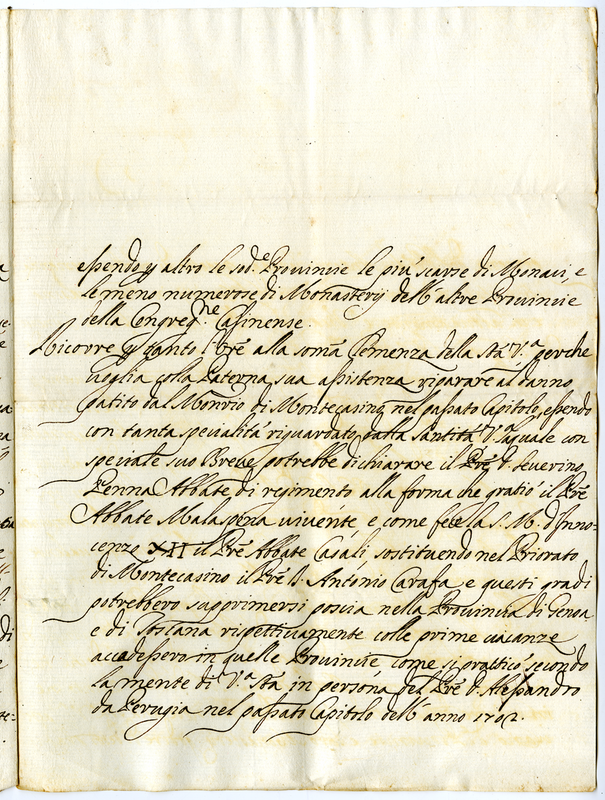 essendo p altro le sod.e Provincie le più scarse di Monaci, e
le meno numerose di Monasterij dell'altre Provincie
della Congreg.ne Casinense.
Ricorre p tanto l'Ore alla soma Clemenza della Stà V.a perche
voglia colla Paterna sua assistenza riparare al danno
patito dal Monrio di Montecasino nel passato Capitolo, essendo
con tanta specialità riguardato dalla Santità V.a la quale con
speciale suo Breve potrebbe dichiarare il Pre D. Severino
Penna Abbate di regimento alla forma che gratiò il Pre
Abbate Malaspina vivente, e come fece la S. M. d'Inno-
cenzo XII il Pre Abbate Casali, sostituendo nel Priorato
di Montecasino il Pre D. Antonio Carafa e questi gradi
potrebbero supprimersi poscia nella Provincia di Genoa
e di Toscana rispettivamente colle prime vacanze
accadessero in quelle Provincie come si pratticò secondo
la mente di V.a Stà in persona del Pre D. Alessandro
da Perugia nel passato Capitolo dell'anno 1702.